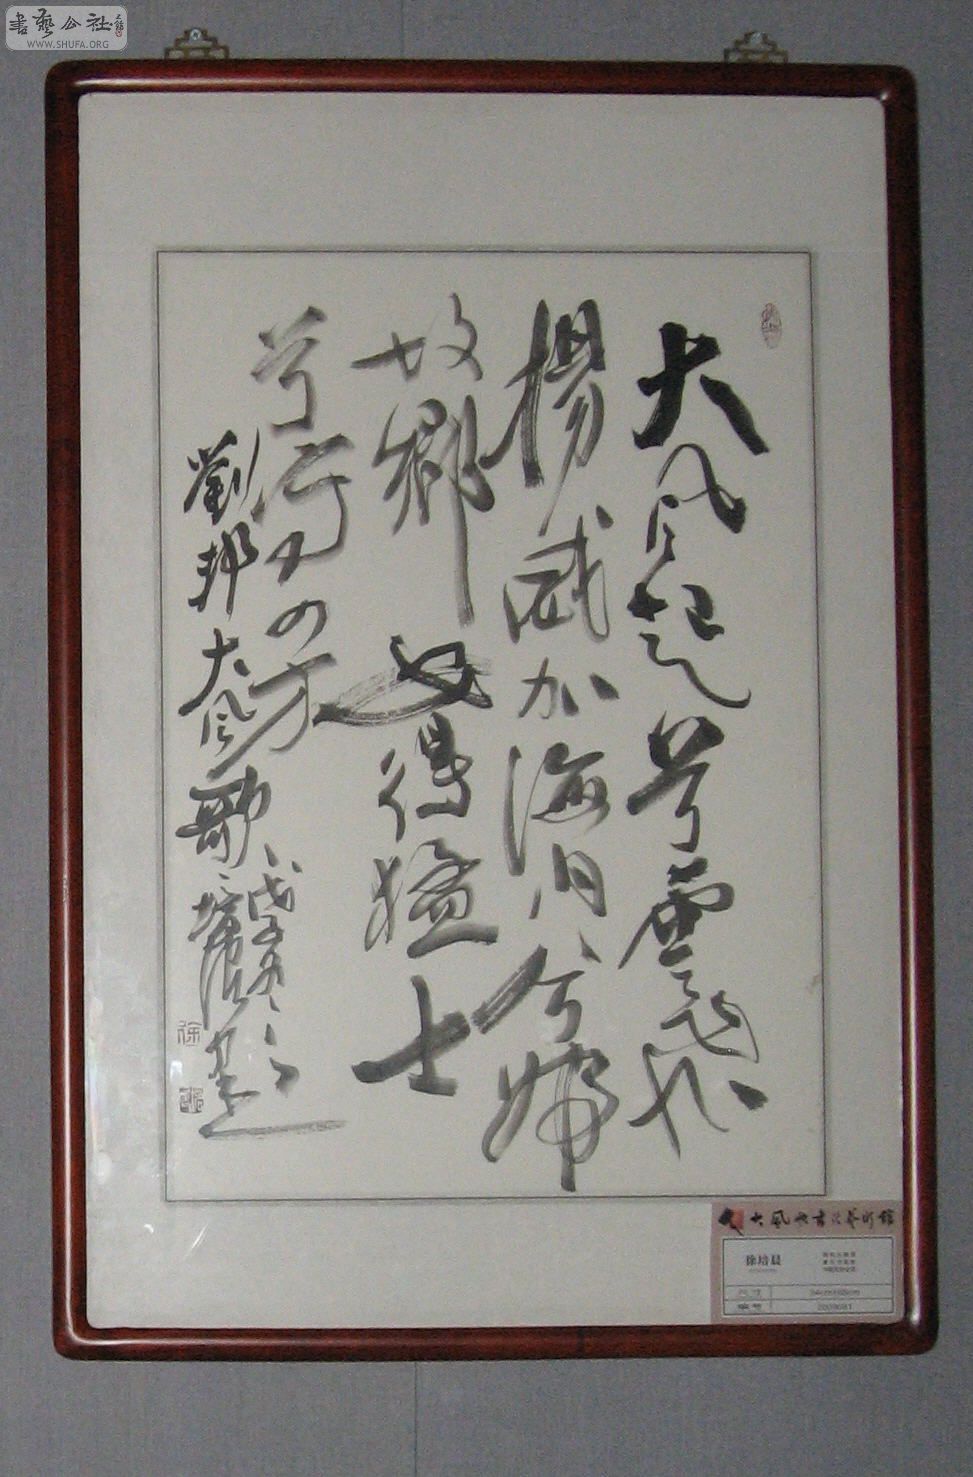 書藝公社
WWW.SHUFA.ORG
大風起兮雲飛
揚威加海内兮歸
故鄉安得猛士
兮守四方
劉邦大風歌
戊子冬
培晨書
徐
大風歌書法藝術館
徐培晨
尺寸
編号